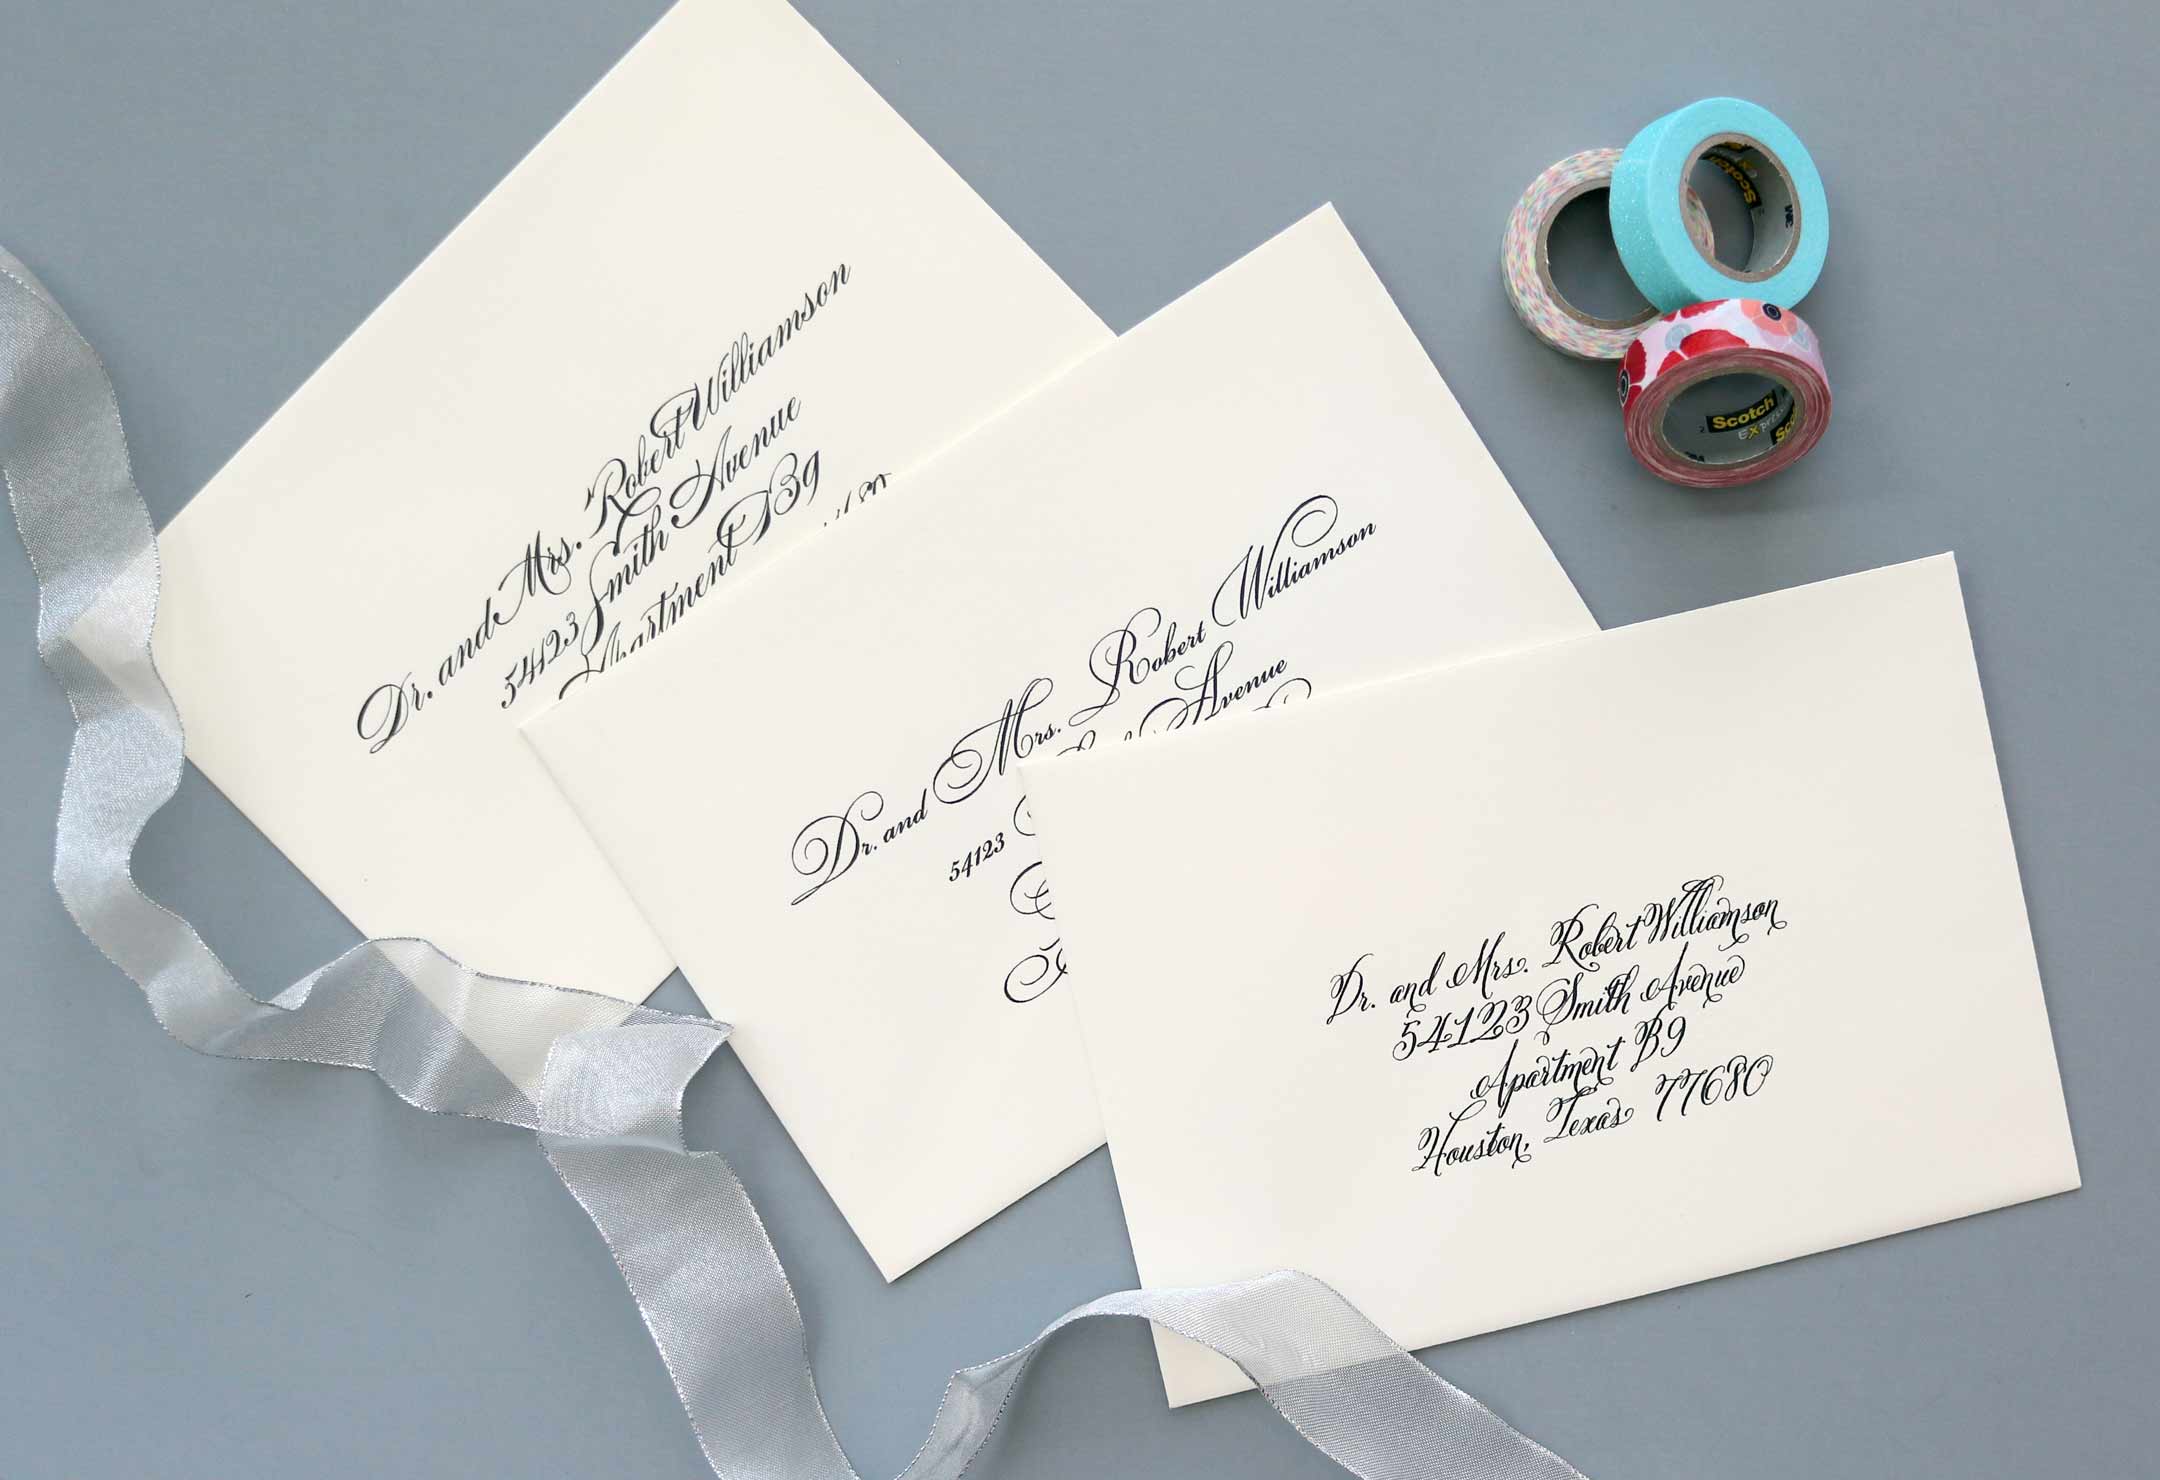 Dr. and Mrs. Robert Williamson
54123 Smith Avenue
Apartment B9
Dr. and Mrs. Robert Williamson
54123
Avenue
Dr. and Mrs. Robert Williamson
54123 Smith Avenue
Apartment B9
Houston, Texas 77680
Scotch
Expressions
3M
Scotch
Expres
Sco
3M